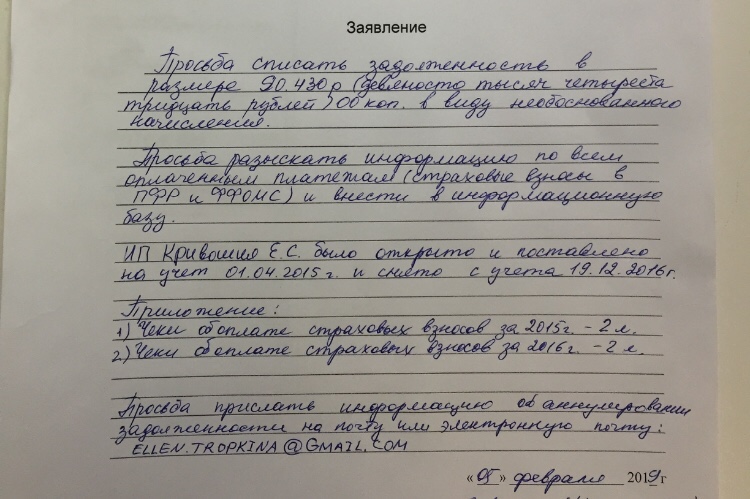 Заявление
Просьба списать задолженность в
размере 90.430р (девяносто тысяч четыреста
тридцать рублей) 00 коп. в виду необоснованного
начисления.
Просьба разыскать информацию по всем
оплаченным платежам (страховые взносы в
ПФР и ФФОМС) и внести в информационную
базу.
ИП Кривошия Е.С. было открыто и поставлено
на учет 01.04.2015г. и снято с учета 19.12.2016г.
Приложение:
1) Чеки об оплате страховых взносов за 2015г. - 2 л.
2) Чеки об оплате страховых взносов за 2016г. - 2 л.
Просьба прислать информацию об аннулировании
задолженности на почту или электронную почту:
ELLEN.TROPKINA@GMAIL.COM
«05» февраля 2019г